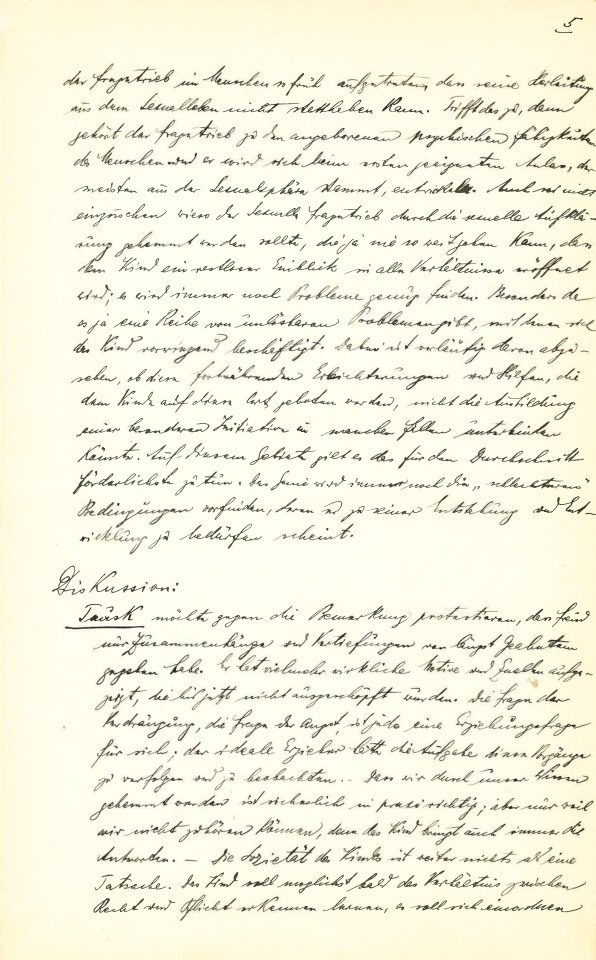 5
der Fragetrieb im Menschen so früh aufgetreten, dass seine Herleitung
aus dem Sexualleben nicht statthaben kann. Trifft das zu, dann
gehört der Fragetrieb zu den angeborenen psychischen Fähigkeiten
des Menschen und er wird sich beim ersten geeigneten Anlass, der
meistens aus der Sexualsphäre stammt, entwickeln. Auch sei nicht
einzusehen wieso der sexuelle Fragetrieb durch die sexuelle Aufklä-
rung gehemmt werden sollte, die ja nie so weit gehen kann, dass
dem Kind ein restloser Einblick in alle Verhältnisse eröffnet
wird; es wird immer noch Probleme genug finden. Besonders da
es ja eine Reihe von unlösbaren Problemen gibt, mit denen sich
das Kind vorwiegend beschäftigt. Dabei ist vorläufig davon abge-
sehen, ob diese fortwährenden Erleichterungen und Hilfen, die
dem Kinde auf diese Art geboten werden, nicht die Ausbildung
einer besonderen Initiative in manchen Fällen unterbinden
könnte. Auf diesem Gebiete gilt es das für den Durchschnitt
förderlichste zu tun. Das Genie wird immer noch die „schlechteren"
Bedingungen vorfinden, deren es zu seiner Entstehung und Ent-
wicklung zu bedürfen scheint.
Diskussion:
Tausk möchte gegen die Bemerkung protestieren, dass Freud
nur Zusammenhänge und Vertiefungen von längst Geahntem
gegeben habe. Er hat vielmehr wirkliche Motive und Quellen aufge-
zeigt, die bis jetzt nicht ausgeschöpft wurden. Die Frage der
Verdrängung, die Frage der Angst, ist jede eine Erziehungsfrage
für sich; der ideale Erzieher hätte die Aufgabe diese Vorgänge
zu verfolgen und zu beobachten. – Dass wir durch unser Wissen
gehemmt werden ist sicherlich in praxi richtig; aber nur weil
wir nicht zuhören können, denn das Kind bringt auch immer die
Antworten. – Die Sozietät des Kindes ist weiter nichts als eine
Tatsache. Das Kind soll möglichst bald das Verhältnis zwischen
Recht und Pflicht erkennen lernen, es soll sich einordnen